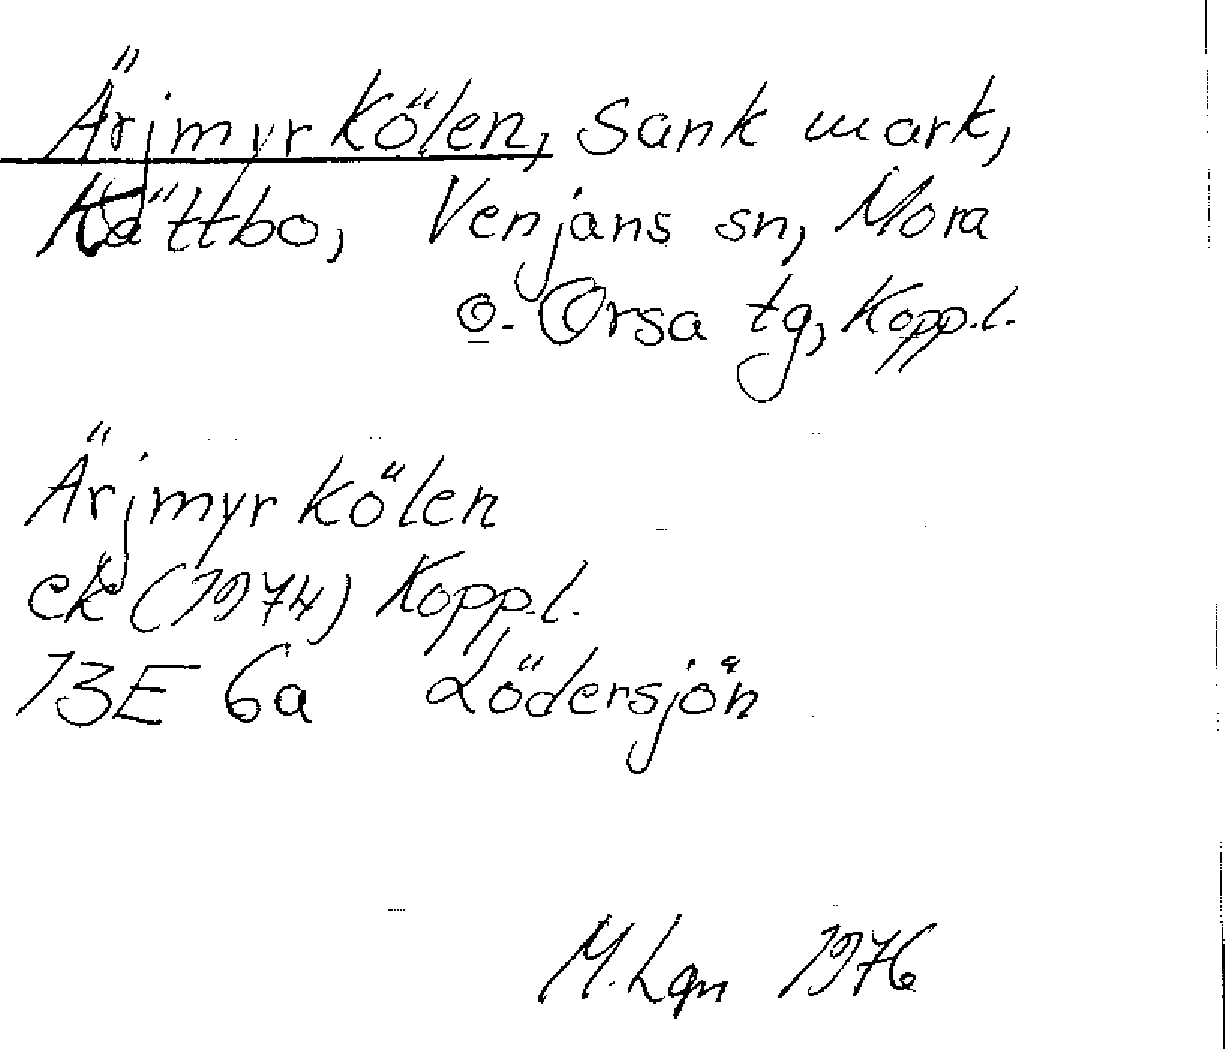 Ärjmyrkölen, Sank mark,
Kättbo, Venjans sn, Mora
o. Orsa tg, Kopp.l.
Ärjmyrkölen
ek (1974) Kopp.l.
13E 6a Lödersjön
M.Lgn 1976